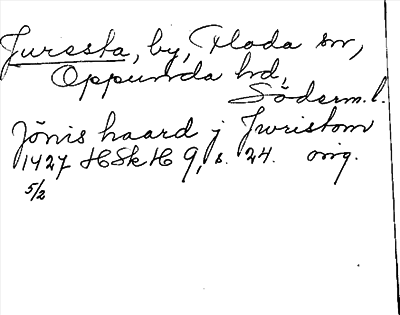 Juresta, by, Floda sn,
Oppunda hd,
Söderm. l.
Jönis haard j Jwristom
1427 HSkH 9, s. 24. orig.
5/2